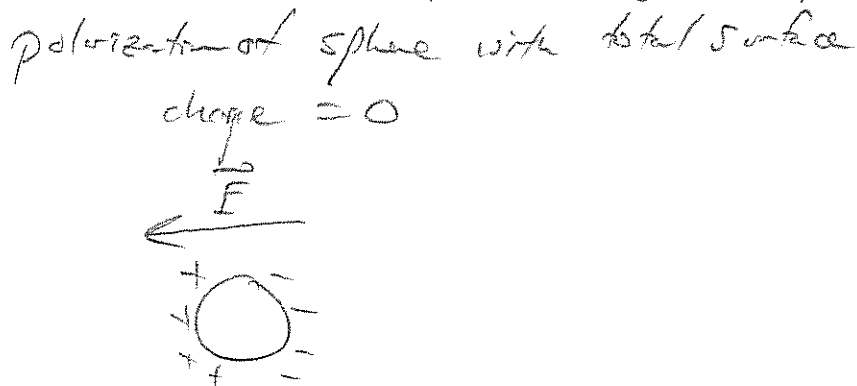 polarization of sphere with total surface
charge = 0
E
+ -
+ -
+ -
+ -